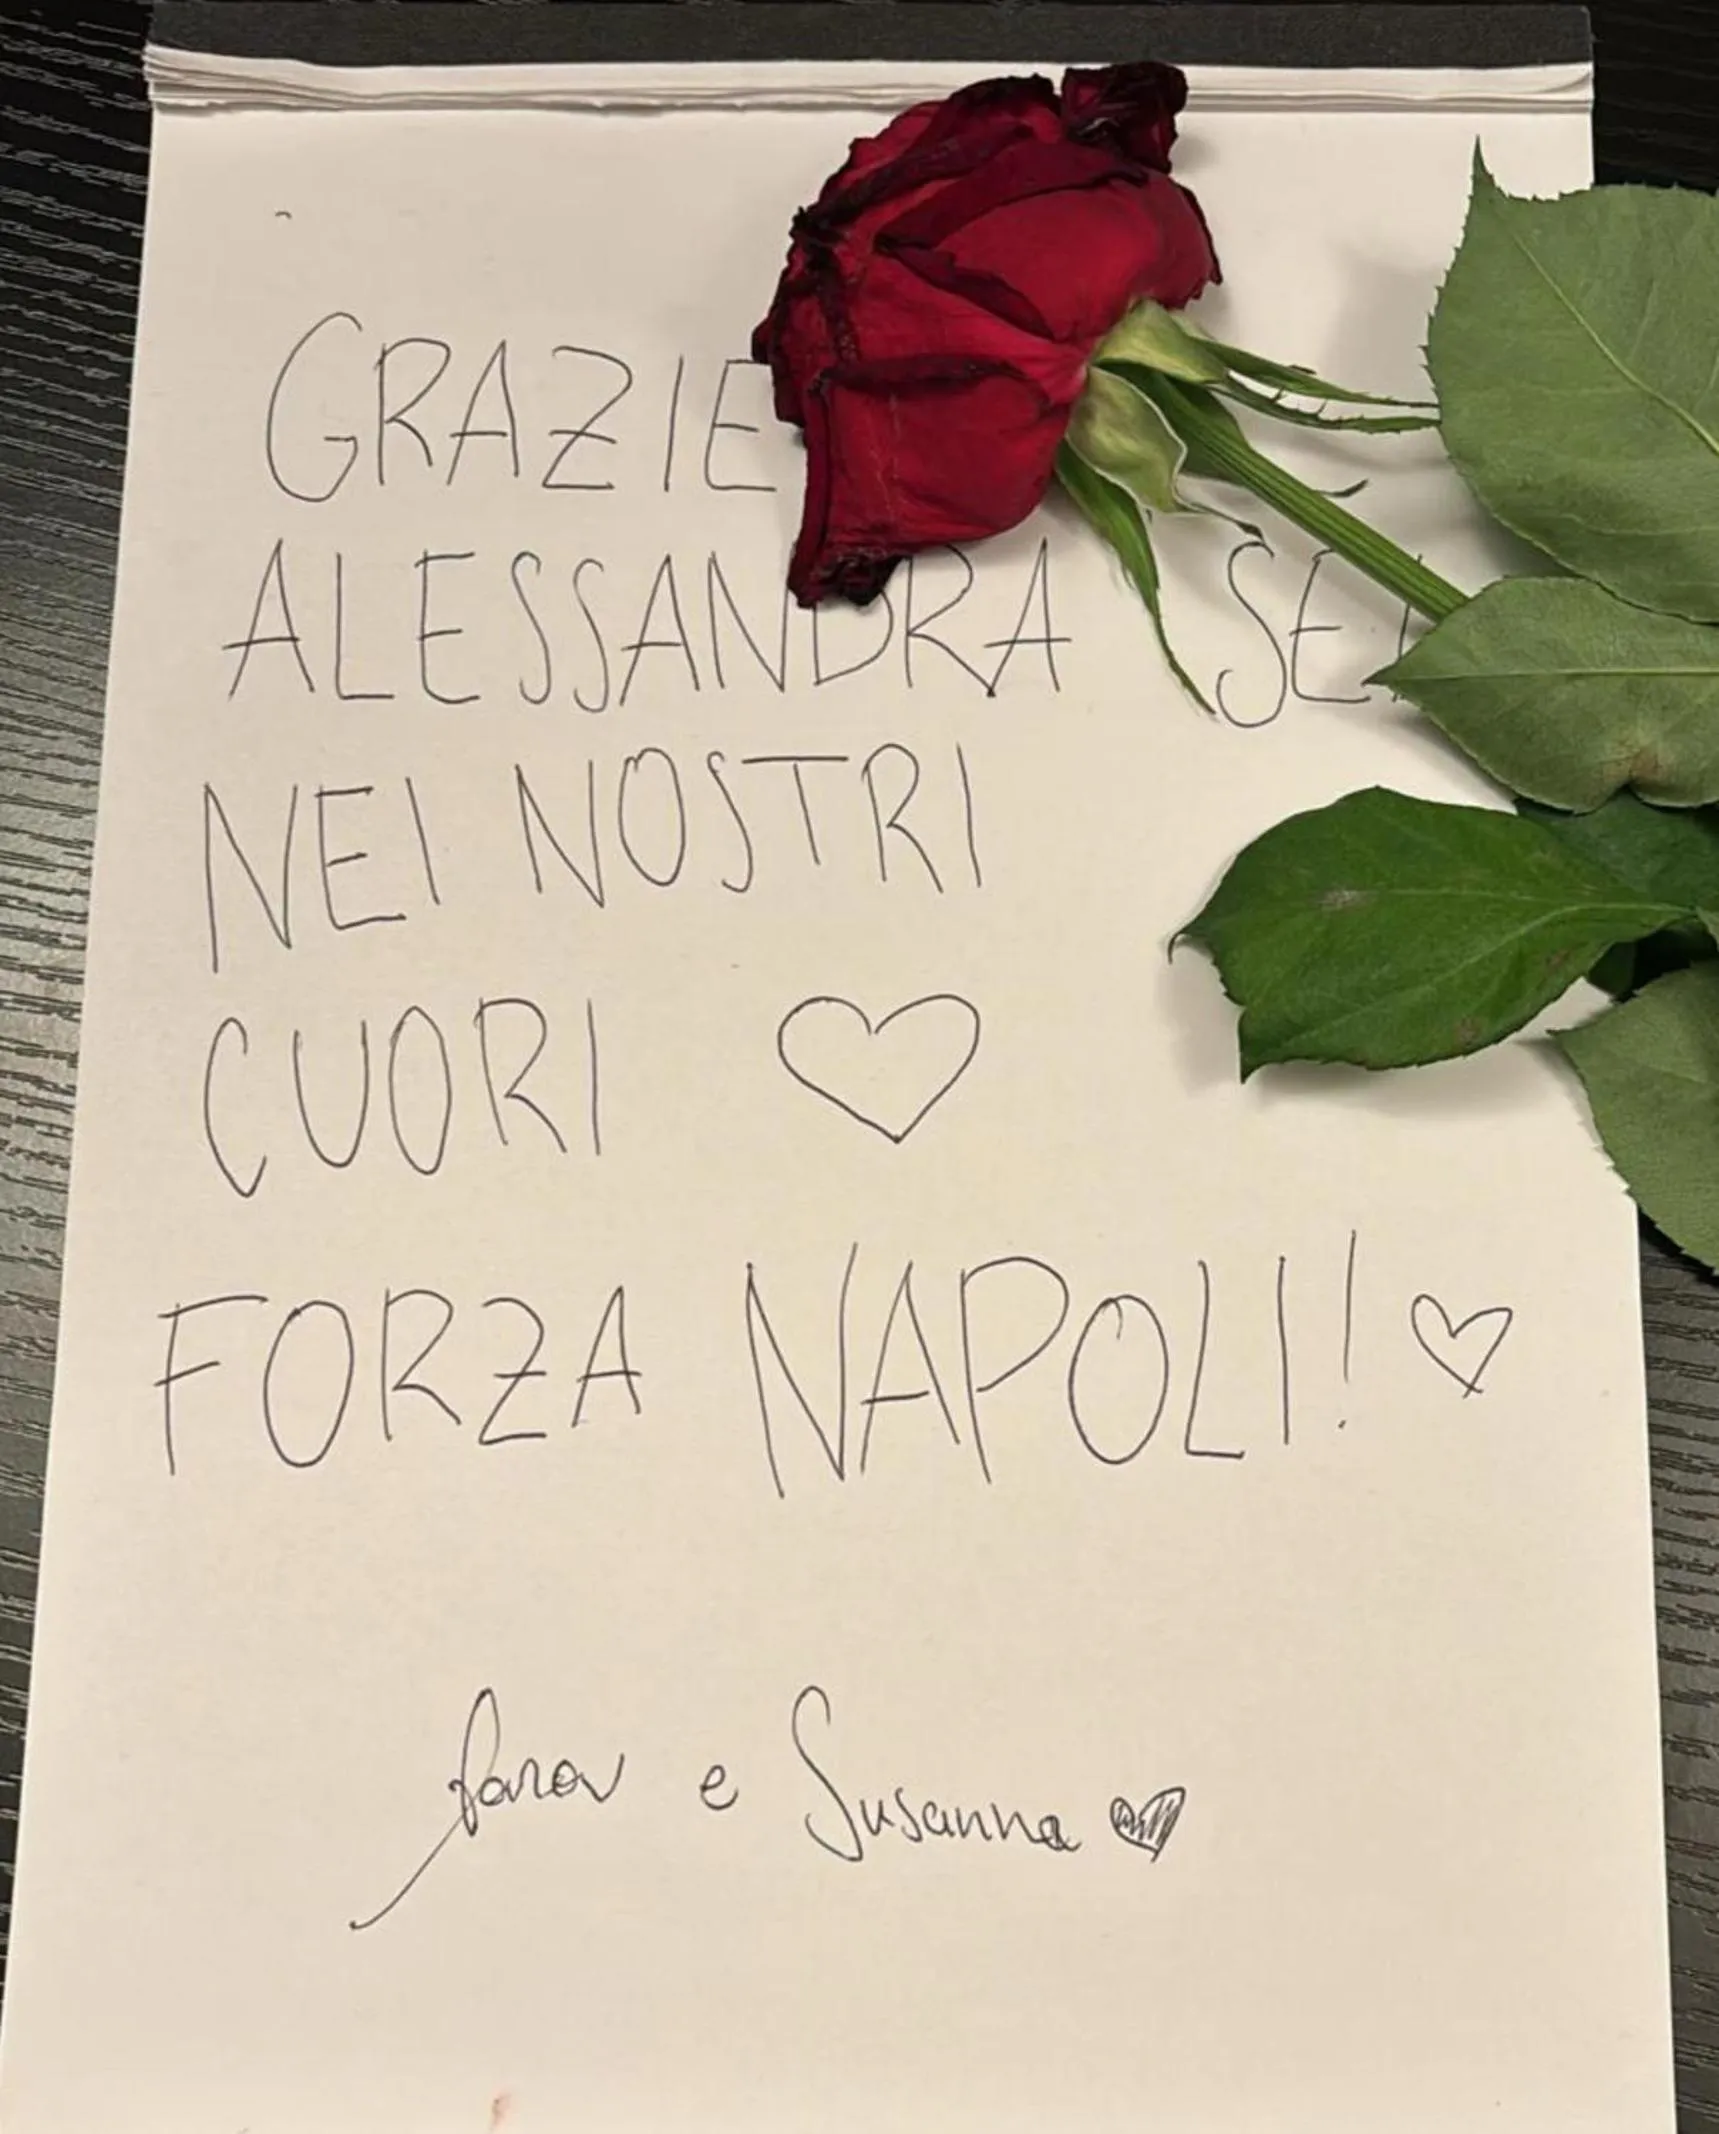 GRAZIE
ALESSANDRA SEI
NEI NOSTRI
CUORI ♡
FORZA NAPOLI! ♡
e Susanna ♡